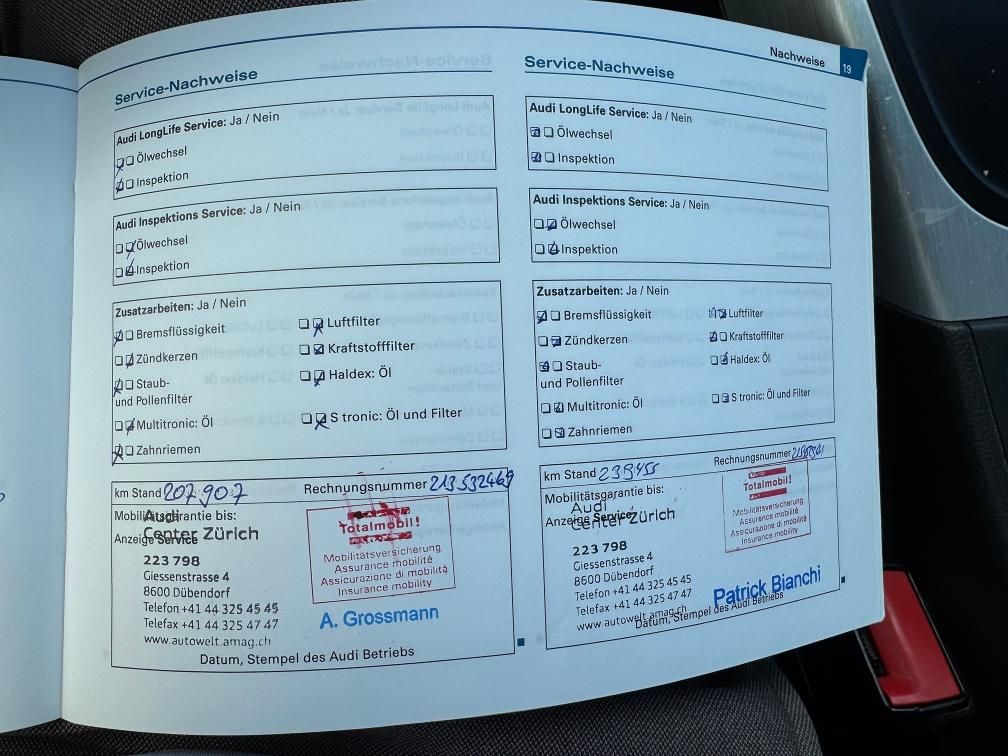 Nachweise 19
Service-Nachweise
Audi LongLife Service: Ja / Nein
Ölwechsel
Inspektion
Audi Inspektions Service: Ja / Nein
Ölwechsel
Inspektion
Zusatzarbeiten: Ja / Nein
Bremsflüssigkeit Luftfilter
Zündkerzen Kraftstofffilter
Staub- Haldex: Öl
und Pollenfilter
Multitronic: Öl S tronic: Öl und Filter
Zahnriemen
km Stand 207.907 Rechnungsnummer 213532469
Mobilitätsgarantie bis:
Anzeige Service
Audi
Center Zürich
223 798
Giessenstrasse 4
8600 Dübendorf
Telefon +41 44 325 45 45
Telefax +41 44 325 47 47
www.autowelt.amag.ch
Totalmobil!
Mobilitätsversicherung
Assurance mobilité
Assicurazione di mobilità
Insurance mobility
A. Grossmann
Datum, Stempel des Audi Betriebs
Service-Nachweise
Audi LongLife Service: Ja / Nein
Ölwechsel
Inspektion
Audi Inspektions Service: Ja / Nein
Ölwechsel
Inspektion
Zusatzarbeiten: Ja / Nein
Bremsflüssigkeit Luftfilter
Zündkerzen Kraftstofffilter
Staub- Haldex: Öl
und Pollenfilter
Multitronic: Öl S tronic: Öl und Filter
Zahnriemen
km Stand 239.455 Rechnungsnummer
Mobilitätsgarantie bis:
Anzeige Service
Audi
Center Zürich
223 798
Giessenstrasse 4
8600 Dübendorf
Telefon +41 44 325 45 45
Telefax +41 44 325 47 47
www.autowelt.amag.ch
Totalmobil!
Mobilitätsversicherung
Assurance mobilité
Assicurazione di mobilità
Insurance mobility
Patrick Bianchi
Datum, Stempel des Audi Betriebs